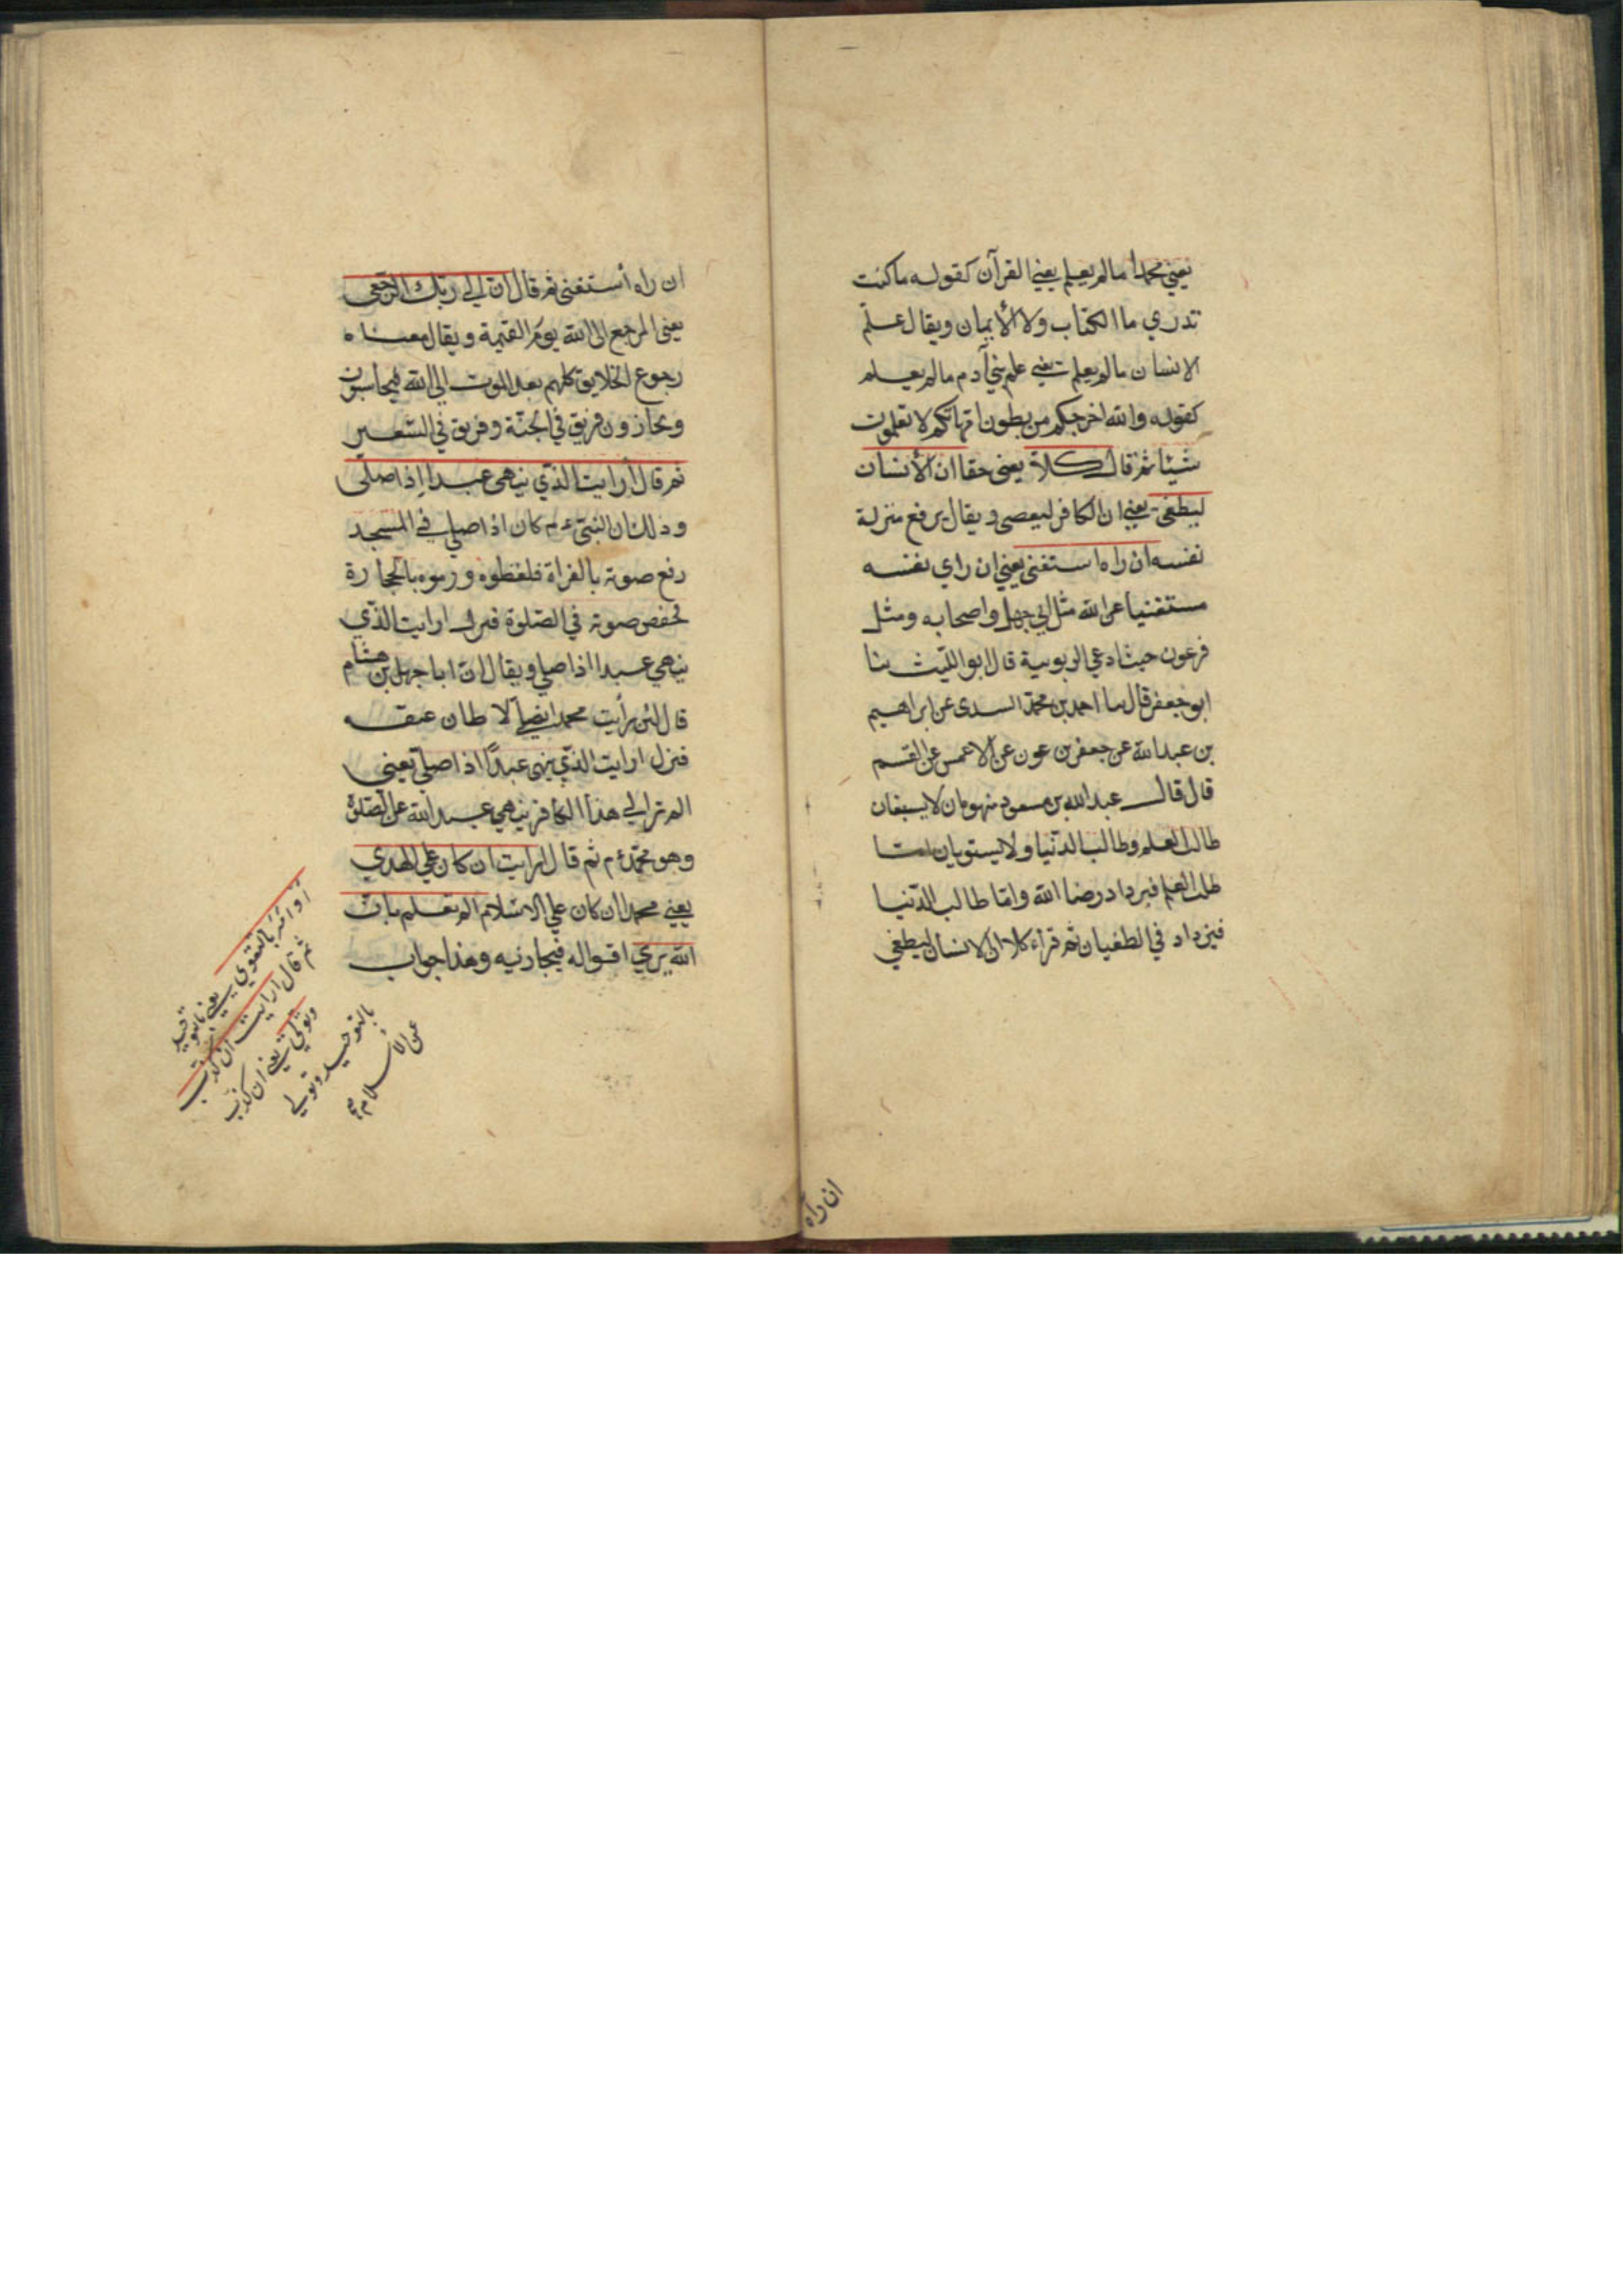 يعني محمدا مالم يعلم يعني القرآن كقوله ما كنت
تدري ما الكتاب ولا الأيمان ويقال علم
الانسان مالم يعلم يعني علم بني آدم مالم يعلم
كقوله والله اخرجكم من بطون امهاتكم لا تعلمون
شيئا ثم قال كلا يعني حقا ان الأنسان
ليطغى يعني ان الكافر ليعصى ويقال يرفع منزلة
نفسه ان راه استغنى يعني ان راي نفسه
مستغنيا عن الله مثل ابي جهل واصحابه ومثل
فرعون حيث ادعي الربوبية قال ابو الليث بنا
ابو جعفر قال احمد بن محمد السدى عن ابراهيم
بن عبد الله عن جعفر بن عون عن الاعمس عن القسم
قال قال عبد الله بن مسعود منهومان لا يشبعان
طالب العلم وطالب الدنيا ولا يستويان اما
طالب العلم فيزداد رضا الله واما طالب الدنيا
فيزداد في الطغيان ثم قراء كلا ان الانسان ليطغي
ان راه
ان راه أستغنى ثم قال ان الي ربك الرجعى
يعنى المرجع الى الله يوم القيمة ويقال معناه
رجوع الخلايق كلهم بعد الموت الي الله فيحاسبون
ويجازون فريق في الجنة وفريق في السعير
ثم قال أرايت الذي ينهى عبدا إذا صلى
وذلك ان النبي عم كان اذا صلي في المسجد
رفع صوته بالقراة فلغطوه ورموه بالحجارة
فخفض صوته في الصلوة فنزل ارايت الذي
ينهي عبدا اذا صلي ويقال ان ابا جهل بن هشام
قال لئن رأيت محمدا يصلي لا طان عنقه
فنزل ارايت الذي ينهى عبدًا اذا صلي يعني
الم تر الي هذا الكافر ينهي عبد الله عن الصلوة
وهو محمد عم ثم قال ارايت ان كان علي الهدي
يعني محمدا ان كان علي الاسلام الم يعلم بان
الله يري اقواله فيجازيه وهذا جواب
أو أمر بالتقوي يعني بالتوحيد
ثم قال ارايت ان كذب
وتولي يعني ان كذب
بالتوحيد وتولي
عن الأسلام